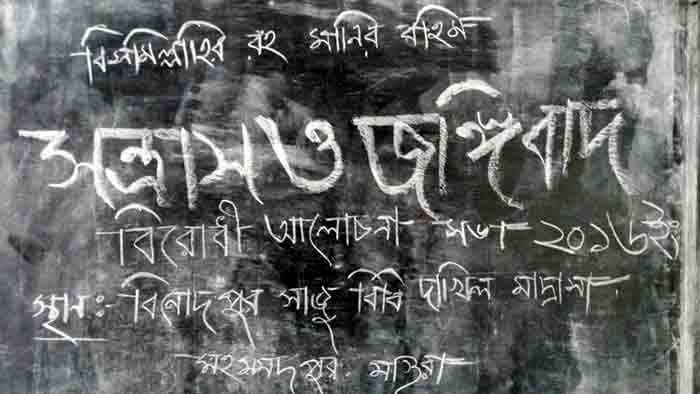 বিসমিল্লাহির রহ মানির রাহিম
সন্ত্রাস ও জঙ্গিবাদ
বিরোধী আলোচনা সভা ২০১৬ইং
স্থান:- বিনোদপুর সাজু বিবি দাখিল মাদ্রাসা.
মহম্মদপুর. মাগুরা